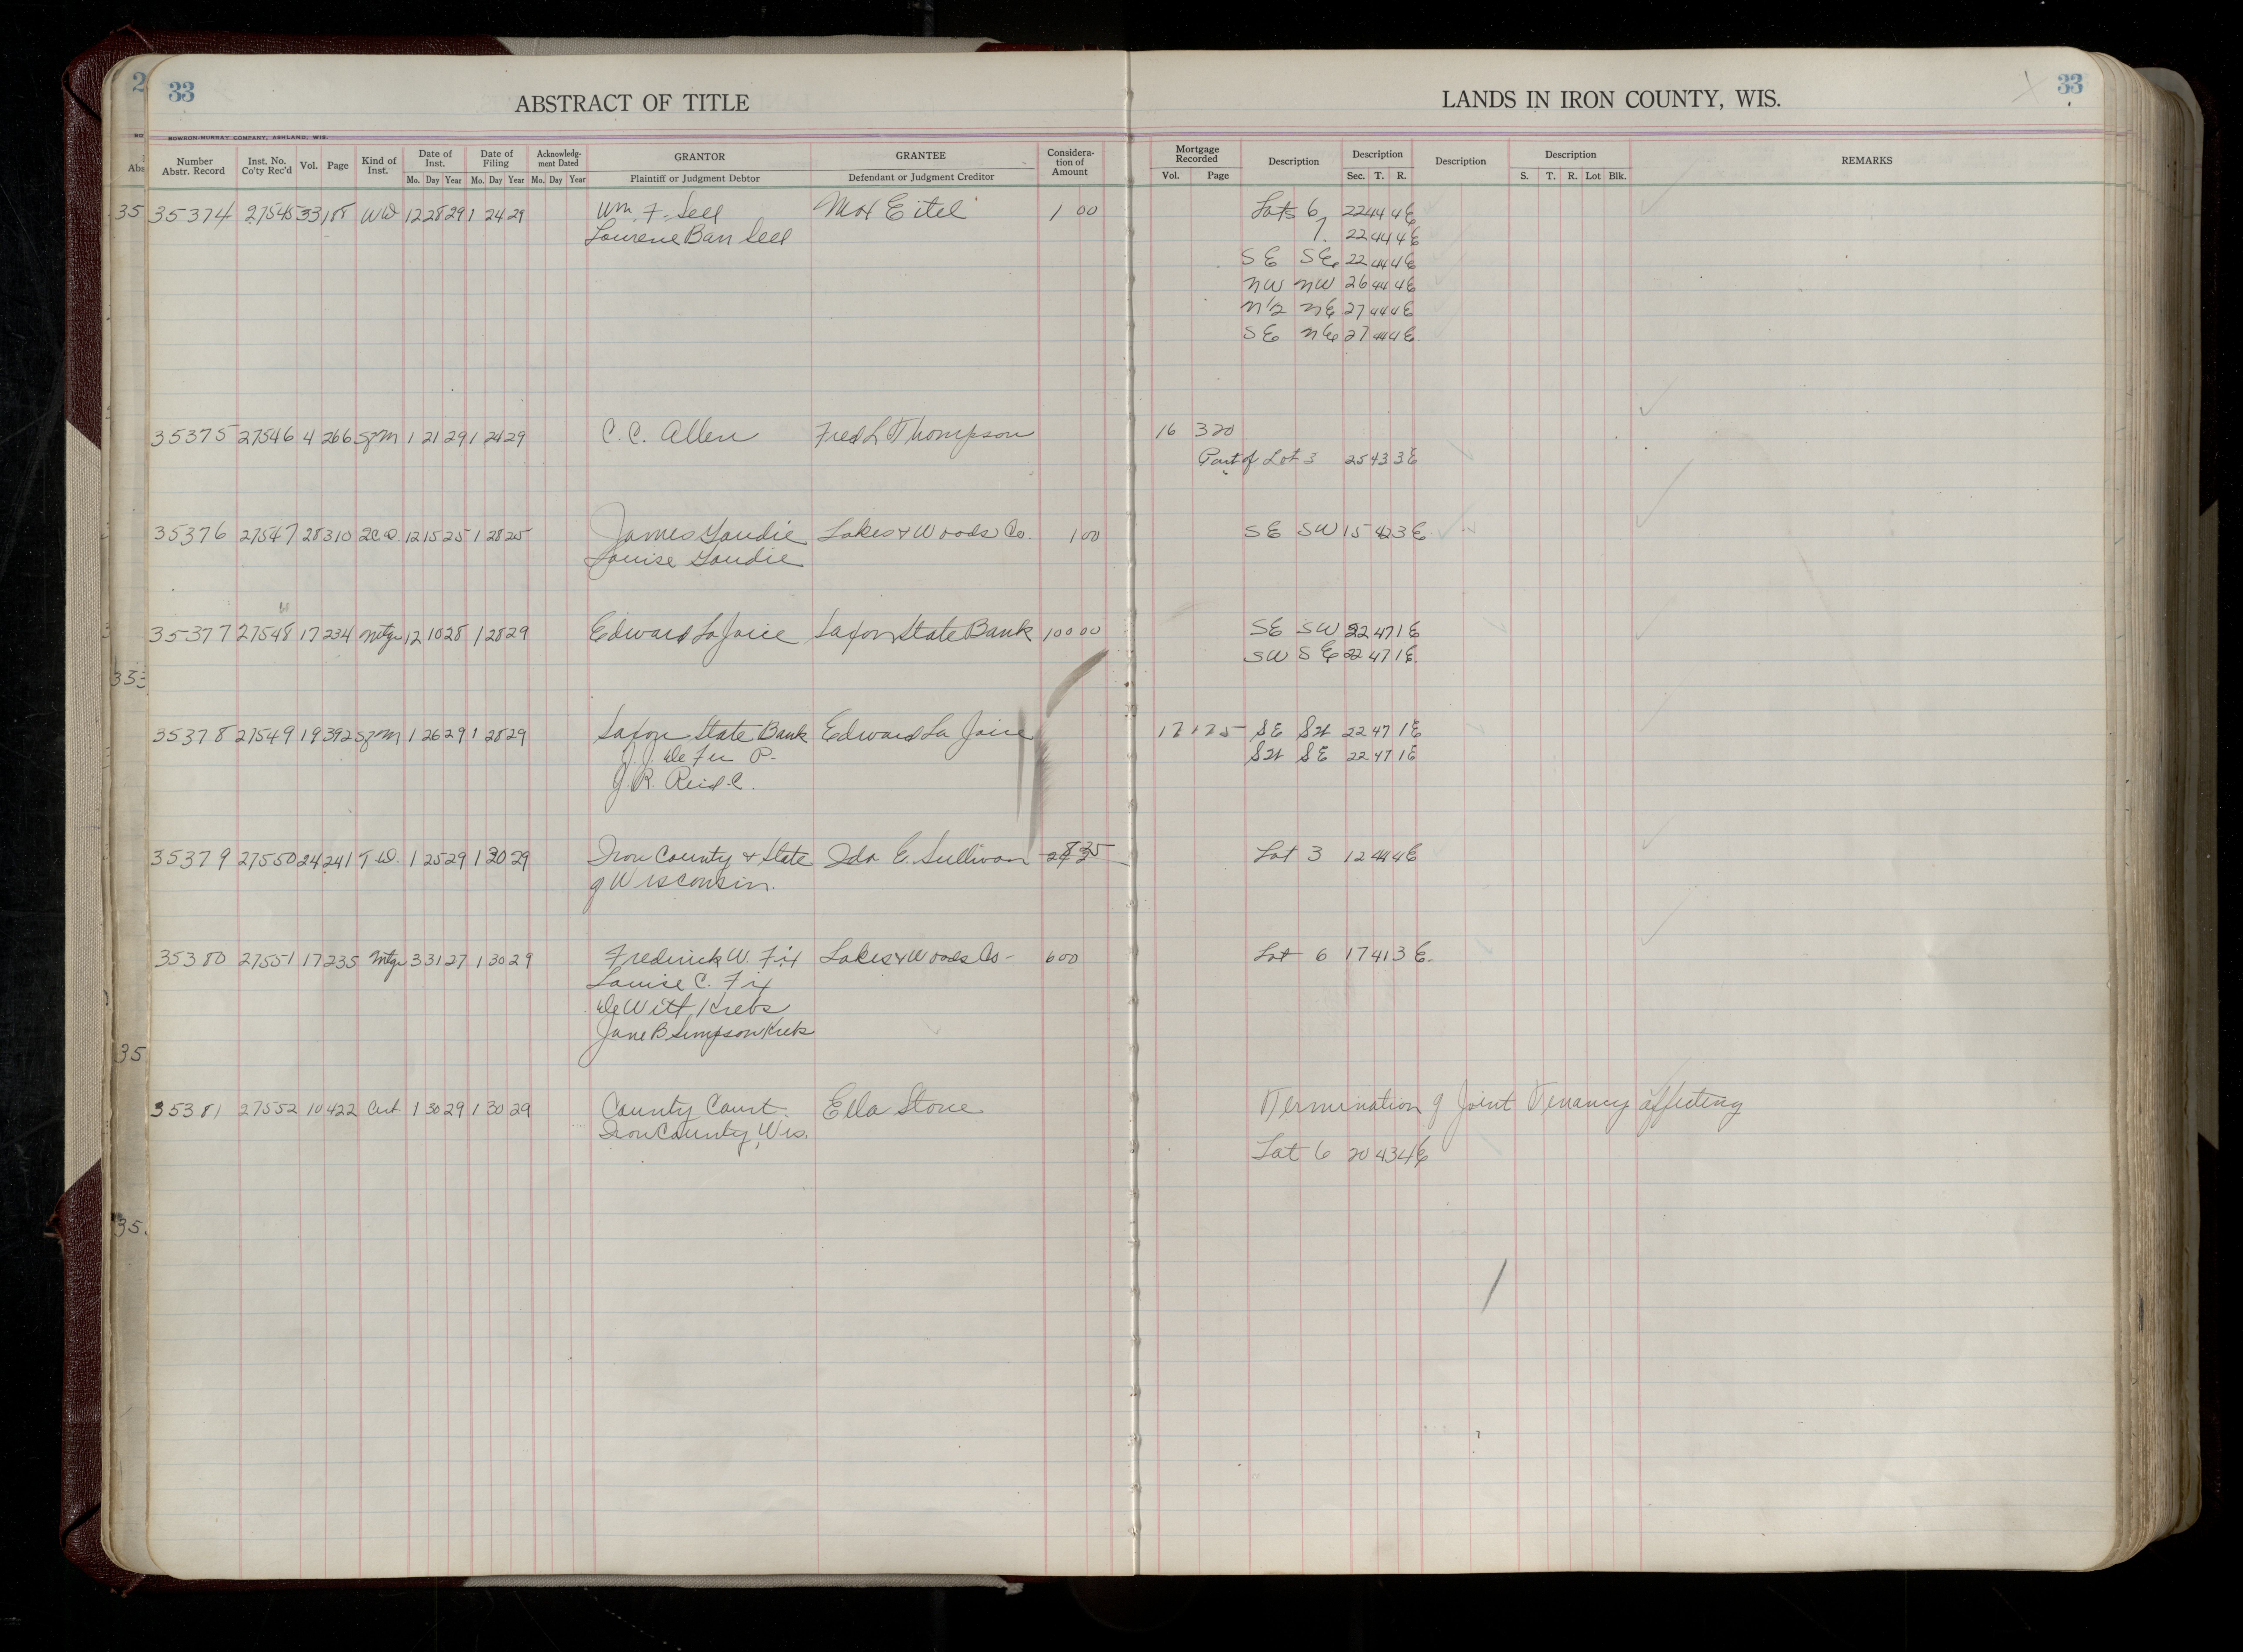 33
ABSTRACT OF TITLE
LANDS IN IRON COUNTY, WIS.
33
BOWRON-MURRAY COMPANY, ASHLAND, WIS.
Number Abstr. Record Inst. No. Co'ty Rec'd Vol. Page Kind of Inst. Date of Inst. Mo. Day Year Date of Filing Mo. Day Year Acknowledg-ment Dated Mo. Day Year GRANTOR Plaintiff or Judgment Debtor GRANTEE Defendant or Judgment Creditor Considera-tion of Amount Mortgage Recorded Vol. Page Description Description Sec. T. R. Description Description S. T. R. Lot Blk. REMARKS
35374 27545 33 188 WD 12 28 29 1 24 29 Wm. F. Sell Max Eitel 1 00 Lots 6 22 44 4E
7. 22 44 4E
SE SE 22 44 4E
NW NW 26 44 4E
N½ NE 27 44 4E
SE NE 27 44 4E
35375 27546 4 266 1 21 29 1 24 29 C. C. Allen Fred L Thompson 16 320
Part of Lot 3 25 43 3E
35376 27547 28 310 12 15 25 1 28 25 James Goudie Lakes & Woods Co. 1 00 SE SW 15 42 3E
Louise Goudie
35377 27548 17 234 Mtge 12 10 28 1 28 29 Edward La Joice Saxon State Bank 100 00 SE SW 22 47 1E
SW SE 22 47 1E
35378 27549 19 392 1 26 29 1 28 29 Saxon State Bank Edward La Joice 17 175 SE SW 22 47 1E
SW SE 22 47 1E
J. R. Reid. C.
35379 27550 24 241 T.D. 1 25 29 1 30 29 Iron County & State Ida E. Sullivan Lot 3 12 44 4E
of Wisconsin.
35380 27551 17 235 Mtge 3 31 27 1 30 29 Frederick W. Fix Lakes & Woods Co- 600 Lot 6 17 41 3E.
Louise C. Fix
DeWitt Krebs
Jane B Simpson Krebs
35381 27552 10 422 Cert 1 30 29 1 30 29 County Court. Ella Stone Termination of Joint Tenancy affecting
Iron County, Wis.
Lot 6 20 43 4E